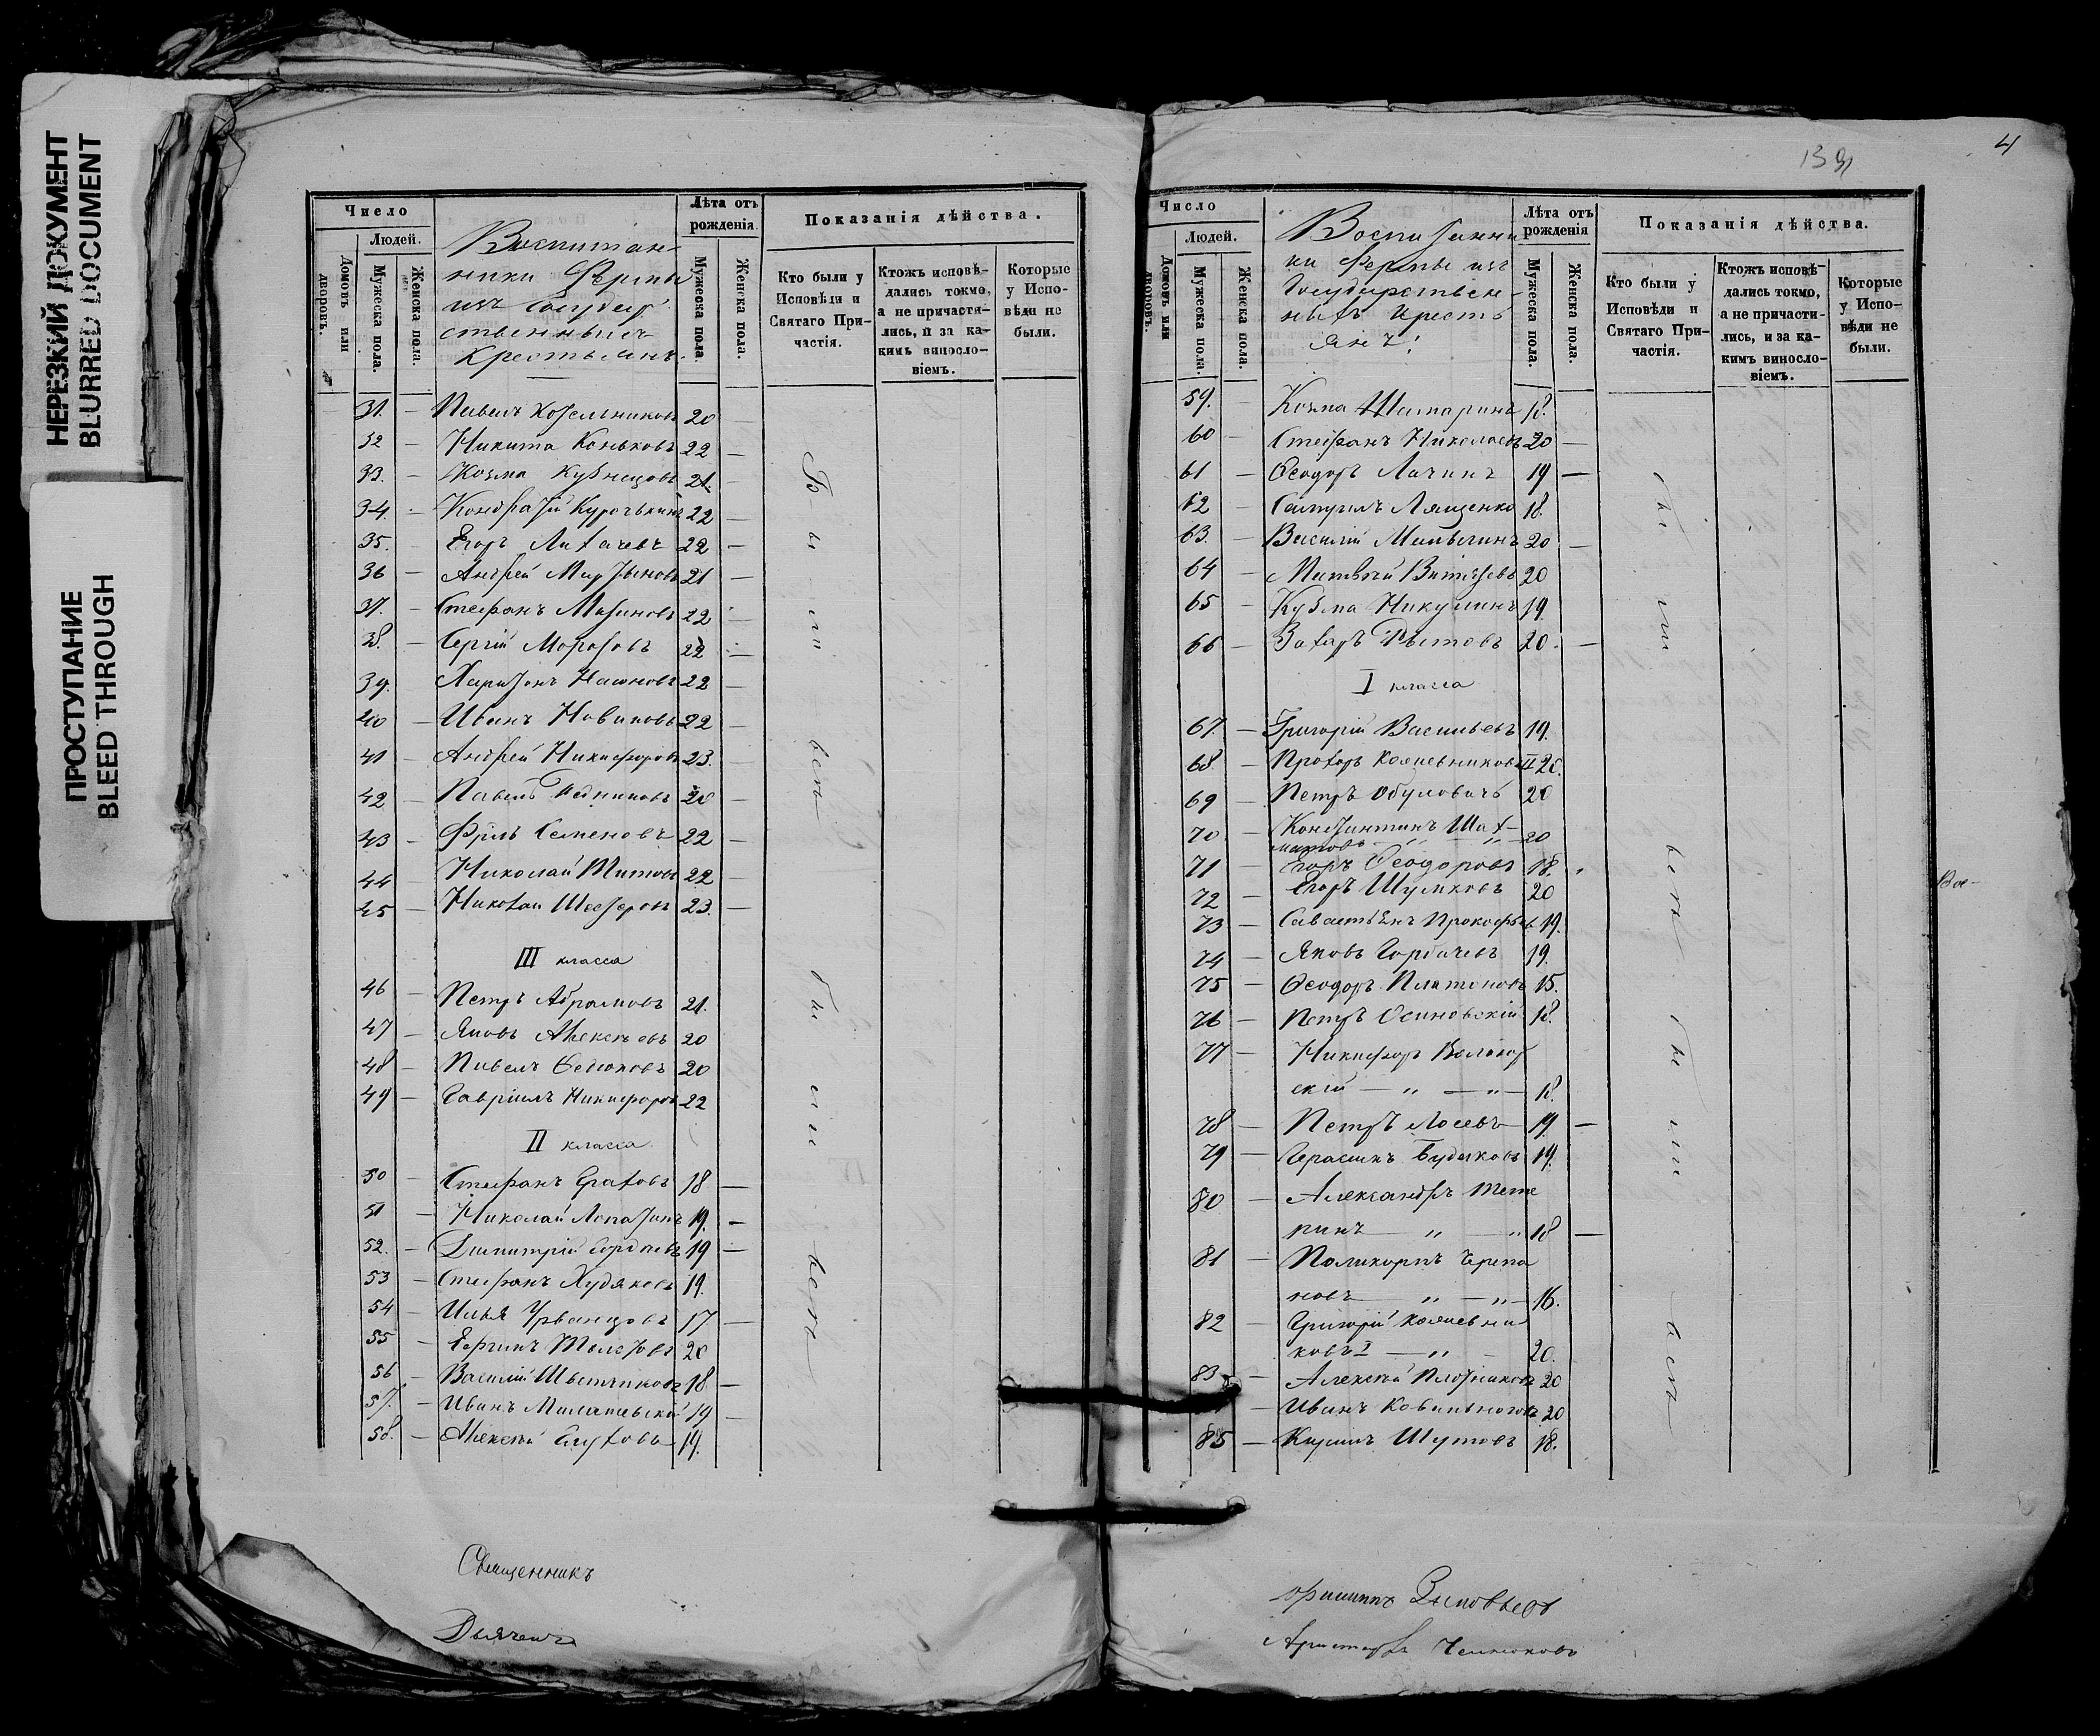 НЕРЕЗКИЙ ДОКУМЕНТ
BLURRED DOCUMENT
ПРОСТУПАНИЕ
BLEED THROUGH
Число
Людей.
Домовъ или дворовъ.
Мужеска пола.
Женска пола.
Воспитан-
ники Фермы
изъ Государ
ственныхъ
Крестьянъ.
Лѣта отъ рожденія.
Мужеска пола.
Женска пола.
Показанія дѣйства.
Кто были у Исповѣди и Святаго Причастія.
Ктожъ исповѣдались токмо, а не причастились, и за какимъ винословіемъ.
Которые у Исповѣди не были.
31. — Павелъ Котельниковъ 20
32 — Никита Коньковъ 22 —
33. — Козма Кузнецовъ 21. —
34. — Кондратій Курочькинъ 22 —
35. — Егоръ Лихачевъ 22 —
36 — Андрей Мартыновъ 21 —
37. — Стефанъ Мариновъ 22 —
38. — Сергій Морозовъ 22 —
39. — Харитонъ 22 —
40 — Иванъ Новиковъ 22 —
41 — Андрей Никифоровъ 23. —
42 — Павелъ 20 —
43 — Фролъ Семеновъ 22 —
44 — Николай Титовъ 22 —
45 — Николай 23. —
III класса
46 — Петръ Абрамовъ 21.
47 — Яковъ Алексѣевъ 20
48 — Павелъ Федюковъ 20
49 — Гавріилъ Никифоров 22
II класса
50 — Стефанъ Ерахов 18 —
51 — Николай Лопатинъ 19. —
52. — Димитрій Гордѣевъ 19 —
53 — Стефанъ Худяковъ 19.
54 — Илья Урванцовъ 17 —
55 — 20
56 — Василій Швешниковъ 18 —
57. — Иванъ Милашевскій 19 —
58. — Алексѣй Глуховъ 19.
Были
всѣ
Были
всѣ
Священникъ
Дьячекъ
139
4
Число
Людей.
Домовъ или дворовъ.
Мужеска пола.
Женска пола.
Воспитанни
ки Фермы изъ
Государствен-
ныхъ кресть
янъ.
Лѣта отъ рожденія
Мужеска пола.
Женска пола.
Показанія дѣйства.
Кто были у Исповѣди и Святаго Причастія.
Ктожъ исповѣдались токмо, а не причастились, и за какимъ винословіемъ.
Которые у Исповѣди не были.
59. — Козма Шатаринъ 18.
60 — Стефанъ Николаевъ 20 —
61 — Ѳеодоръ Лачинъ 19 —
62 — Самуилъ Лященко 18.
63. — Василій Мамыкинъ 20 —
64 — Матвѣй 20
65 — Кузма Никулинъ 19
66 — Захаръ Рытовъ 20. —
I класса
67. — Григорій Васильевъ 19.
68 — Прохоръ Калиевниковъ II 20.
69 — Петръ Обуховичъ 20
70 — Константинъ Шах-
матовъ — „ — „ — 20
71 — Егоръ Ѳеодоровъ 18.
72 — Егоръ Шуляковъ 20
73 — Савастьянъ Прокофьев 19.
74 — Яковъ Горбачевъ 19.
75 — Ѳеодоръ Платоновъ 15.
76 — Петръ Осиновскій 18.
77 — Никифоръ
скій — „ — „ — 18.
78 — Петръ Лосевъ 19 —
79 — Герасимъ Будаковъ 19.
80 — Александръ Тете
ринъ — „ — „ 18 —
81 — Поликарпъ Черепа
новъ — „ — „ — 16.
82 — Григорій Калиевни
ковъ I — „ — 20.
83 — Алексѣй Плотниковъ 20
— Иванъ 20
85 — Кирилъ Шутовъ 18.
Были
всѣ
Были
всѣ
Вос-
Филиппъ Зиновьевъ
Аристархъ Челноковъ